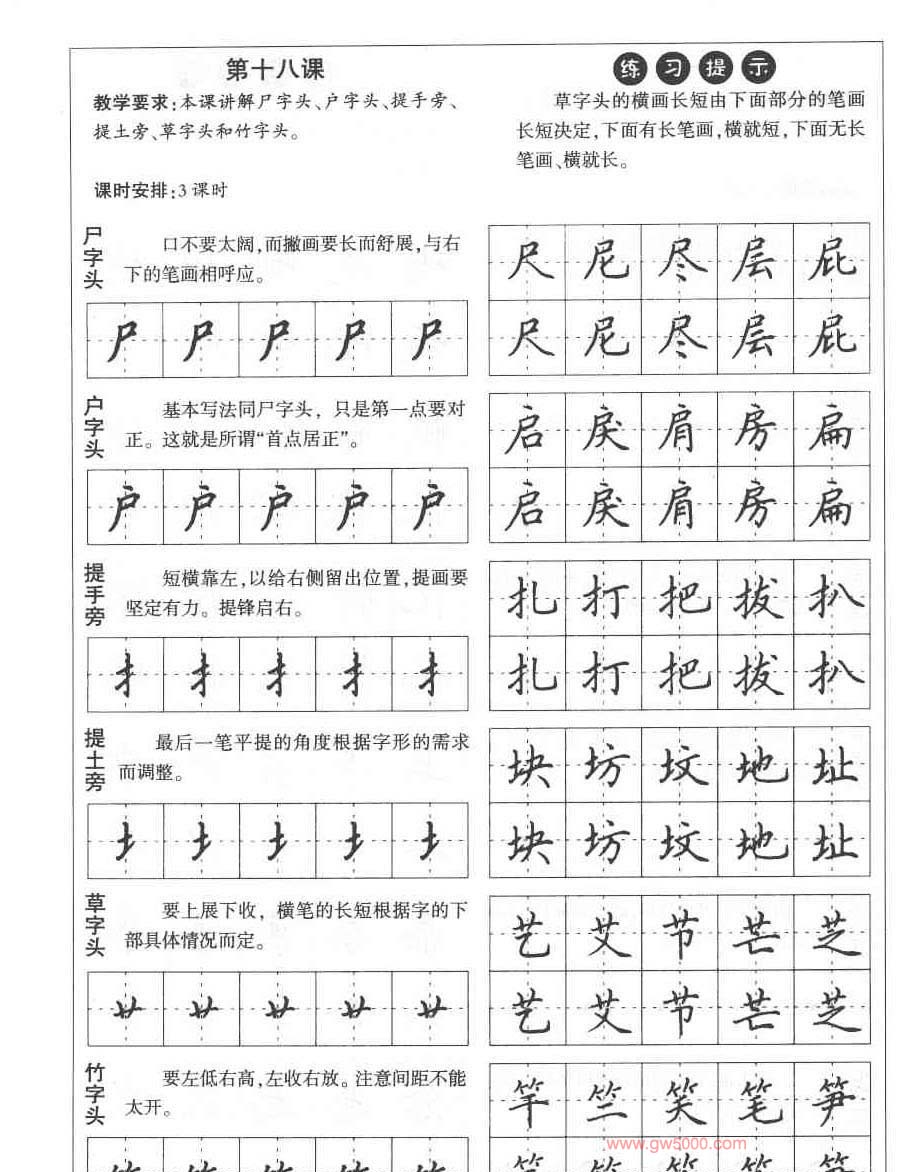 第十八课
教学要求:本课讲解尸字头、户字头、提手旁、
提土旁、草字头和竹字头。
课时安排:3课时
练习提示
草字头的横画长短由下面部分的笔画
长短决定,下面有长笔画,横就短,下面无长
笔画、横就长。
尸字头
口不要太阔,而撇画要长而舒展,与右
下的笔画相呼应。
尸尸尸尸尸
尺尼尽层屁
尺尼尽层屁
户字头
基本写法同尸字头，只是第一点要对
正。这就是所谓“首点居正”。
户户户户户
启戾肩房扁
启戾肩房扁
提手旁
短横靠左,以给右侧留出位置,提画要
坚定有力。提锋启右。
扌扌扌扌扌
扎打把拔扒
扎打把拔扒
提土旁
最后一笔平提的角度根据字形的需求
而调整。
土土土土土
块坊坟地址
块坊坟地址
草字头
要上展下收，横笔的长短根据字的下
部具体情况而定。
艹艹艹艹艹
艺艾节芒芝
艺艾节芒芝
竹字头
要左低右高,左收右放。注意间距不能
太开。
竿竺笑笔笋
www.gw5000.com